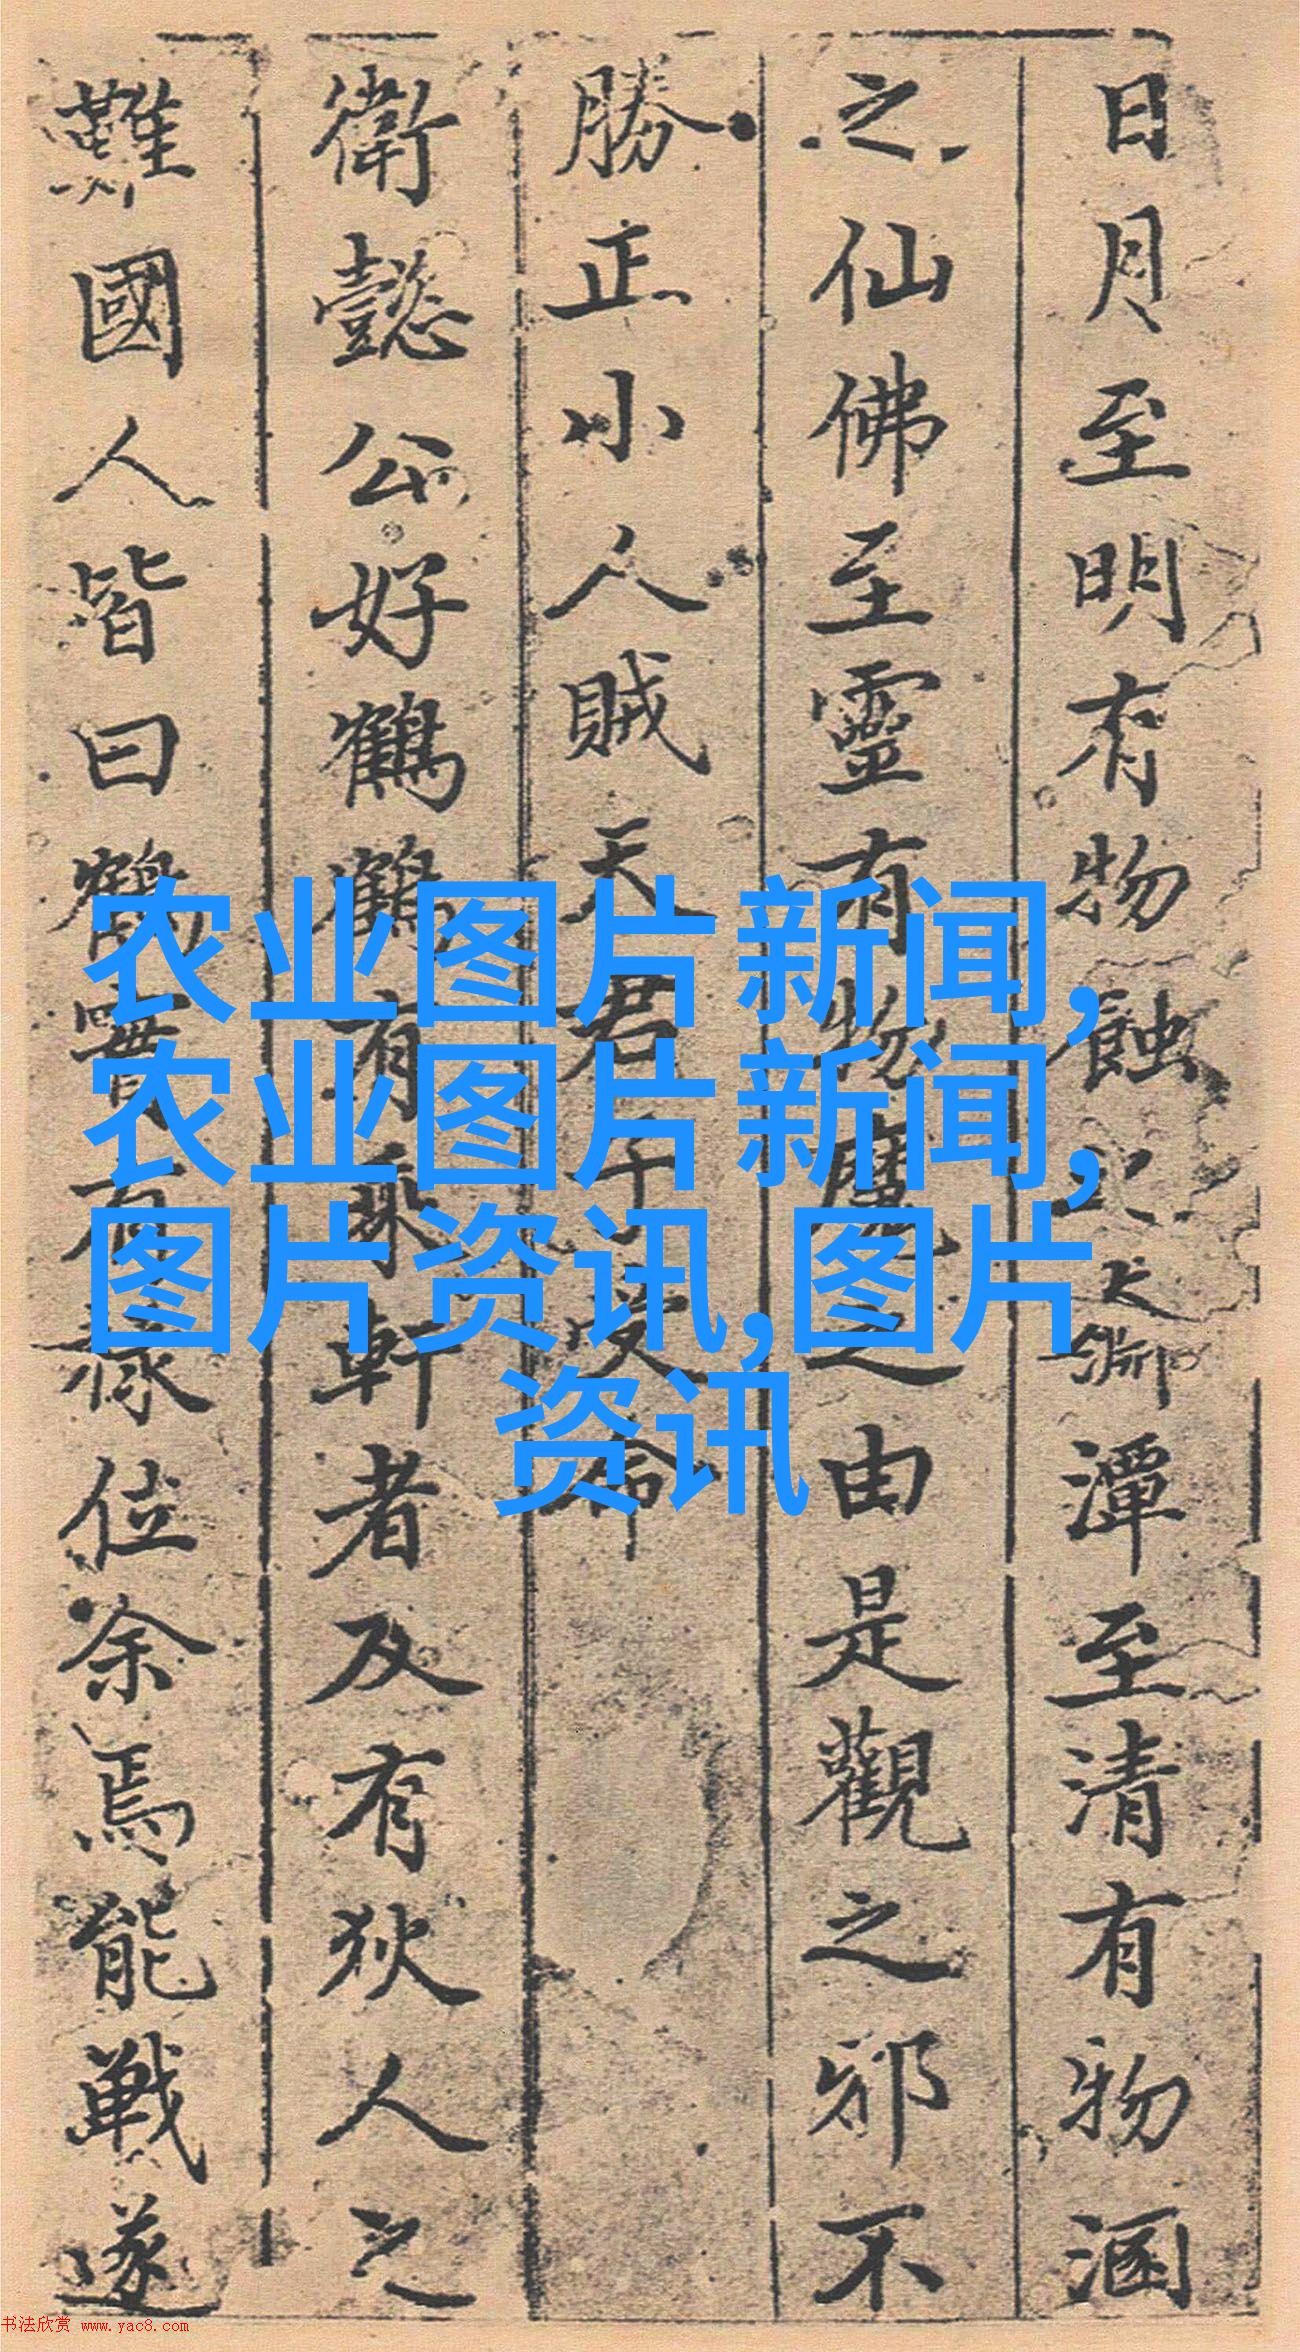 日月至明有物蝕之渊潭至清有物涵
之仙佛至靈有物魔之由是觀之邪不
勝正小人賊天君子受命
衛懿公好鶴鶴有乘軒者及有狄人之
難國人皆曰鶴實有祿位余焉能戰遂
农业图片新闻,
农业图片新闻,
图片资讯,图片
资讯
书法欣赏 www.yac8.com